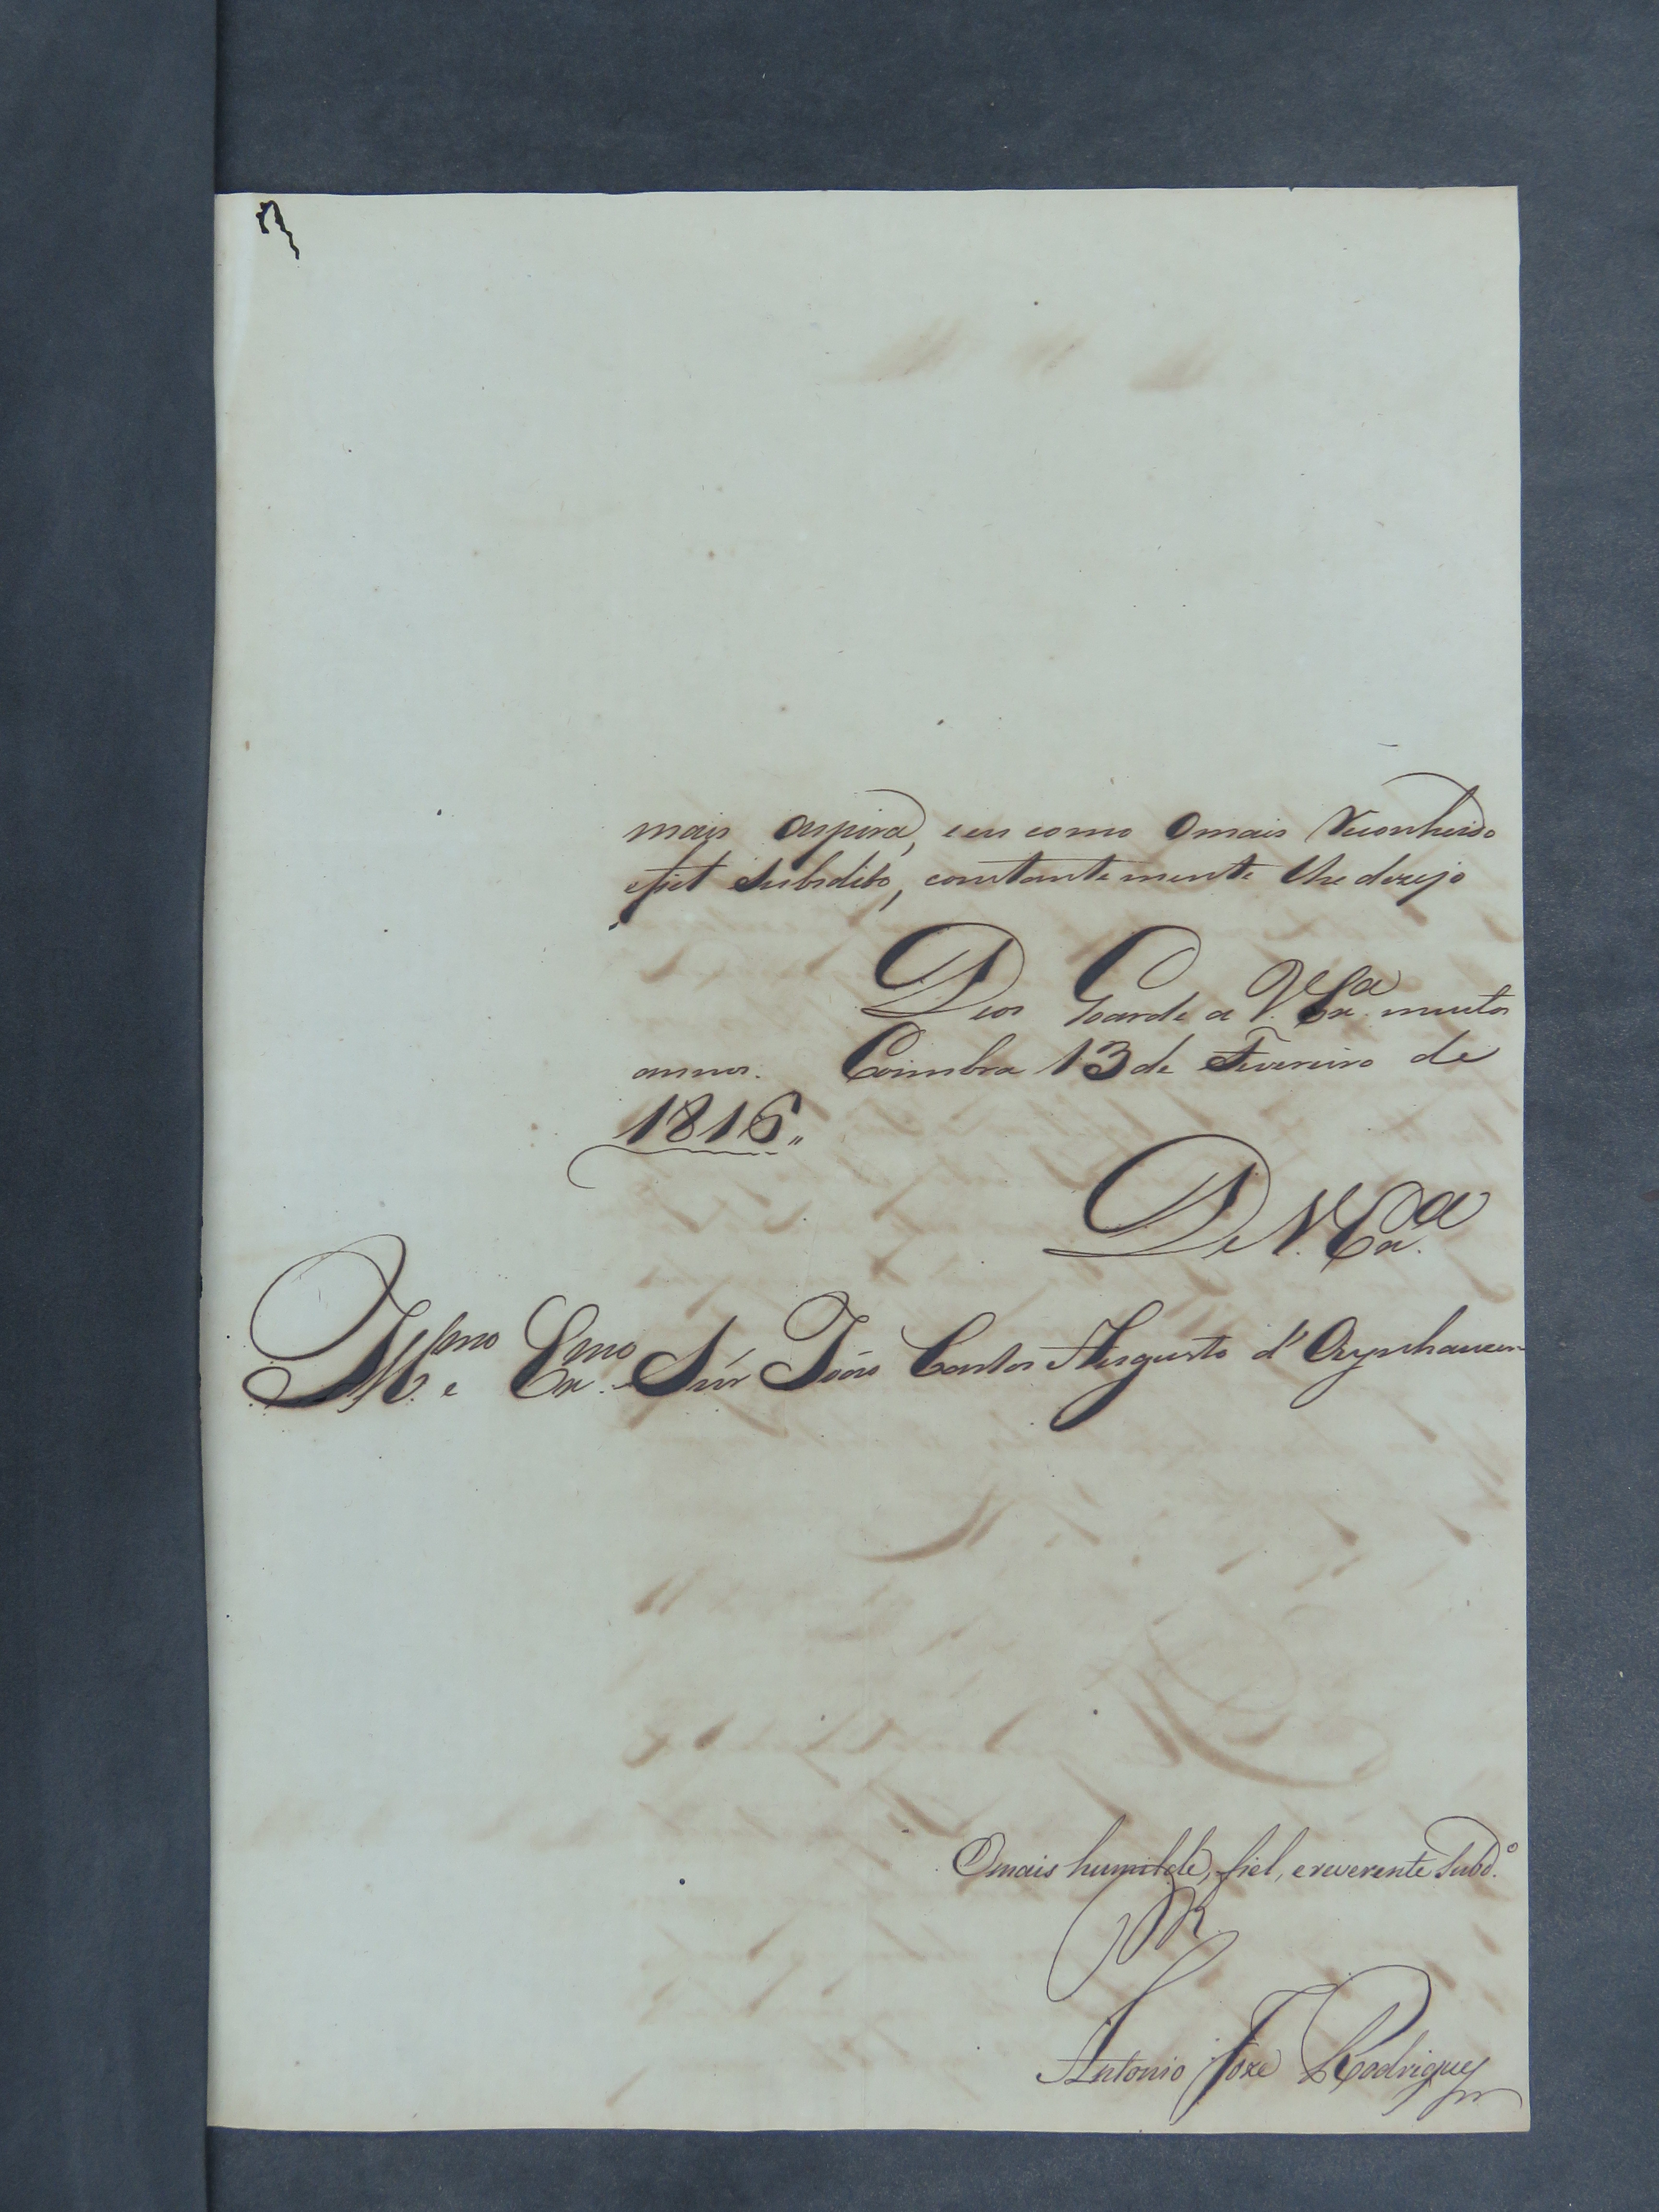 mais aspira, eeu como Omais Reconhecido
efiel Subdito, constantemente lhe dezejo
Deos Goarde a V. Ex.ª muitos
annos. Coimbra 13 de Fevereiro de
1816„
De V. Ex.ª
Ill.mo e Ex.mo Snr João Carlos Augusto d'Oeynhausen
Omais humilde, fiel, ereverente Subd.º
Antonio Joze Rodrigues